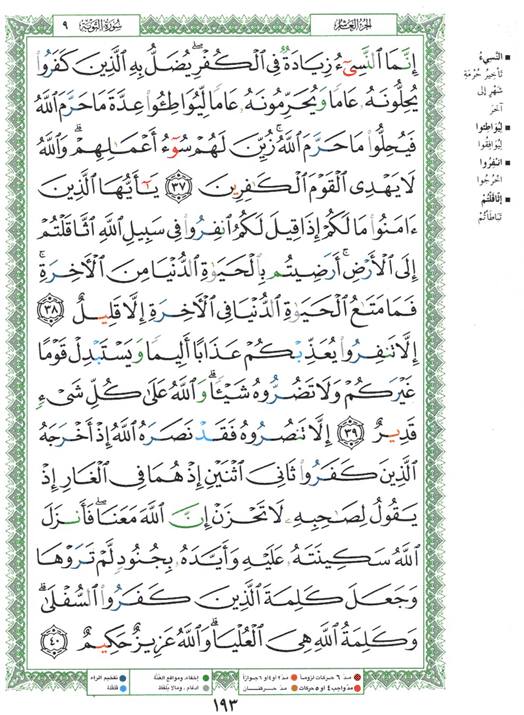 الجزء العاشر
سورة التوبة ٩
إِنَّمَا ٱلنَّسِىٓءُ زِيَادَةٌ فِى ٱلْكُفْرِ ۖ يُضَلُّ بِهِ ٱلَّذِينَ كَفَرُوا۟
يُحِلُّونَهُۥ عَامًا وَيُحَرِّمُونَهُۥ عَامًا لِّيُوَاطِـُٔوا۟ عِدَّةَ مَا حَرَّمَ ٱللَّهُ
فَيُحِلُّوا۟ مَا حَرَّمَ ٱللَّهُ ۚ زُيِّنَ لَهُمْ سُوٓءُ أَعْمَـٰلِهِمْ ۗ وَٱللَّهُ
لَا يَهْدِى ٱلْقَوْمَ ٱلْكَـٰفِرِينَ ٣٧ يَـٰٓأَيُّهَا ٱلَّذِينَ
ءَامَنُوا۟ مَا لَكُمْ إِذَا قِيلَ لَكُمُ ٱنفِرُوا۟ فِى سَبِيلِ ٱللَّهِ ٱثَّاقَلْتُمْ
إِلَى ٱلْأَرْضِ ۚ أَرَضِيتُم بِٱلْحَيَوٰةِ ٱلدُّنْيَا مِنَ ٱلْـَٔاخِرَةِ ۚ
فَمَا مَتَـٰعُ ٱلْحَيَوٰةِ ٱلدُّنْيَا فِى ٱلْـَٔاخِرَةِ إِلَّا قَلِيلٌ ٣٨
إِلَّا تَنفِرُوا۟ يُعَذِّبْكُمْ عَذَابًا أَلِيمًا وَيَسْتَبْدِلْ قَوْمًا
غَيْرَكُمْ وَلَا تَضُرُّوهُ شَيْـًٔا ۗ وَٱللَّهُ عَلَىٰ كُلِّ شَىْءٍ
قَدِيرٌ ٣٩ إِلَّا تَنصُرُوهُ فَقَدْ نَصَرَهُ ٱللَّهُ إِذْ أَخْرَجَهُ
ٱلَّذِينَ كَفَرُوا۟ ثَانِىَ ٱثْنَيْنِ إِذْ هُمَا فِى ٱلْغَارِ إِذْ
يَقُولُ لِصَـٰحِبِهِۦ لَا تَحْزَنْ إِنَّ ٱللَّهَ مَعَنَا ۖ فَأَنزَلَ
ٱللَّهُ سَكِينَتَهُۥ عَلَيْهِ وَأَيَّدَهُۥ بِجُنُودٍ لَّمْ تَرَوْهَا
وَجَعَلَ كَلِمَةَ ٱلَّذِينَ كَفَرُوا۟ ٱلسُّفْلَىٰ ۗ
وَكَلِمَةُ ٱللَّهِ هِىَ ٱلْعُلْيَا ۗ وَٱللَّهُ عَزِيزٌ حَكِيمٌ ٤٠
■ النَّسِيءُ
تأخِيرُ حُرْمَةِ
شَهْرٍ إلى
آخَرَ
■ لِيُوَاطِئوا
لِيُوَافِقُوا
■ انْفِرُوا
اخْرُجُوا
■ اثَّاقَلْتُمْ
تَبَاطَأْتُمْ
مدّ ٦ حركات لزوماً مدّ ٢ أو ٤ أو ٦ جوازاً
مدّ واجب ٤ أو ٥ حركات مدّ حركتان
إخفاء، ومواقع الغُنَّة
إدغام، وما لا يُلفَظ
تفخيم الراء
قلقلة
١٩٣